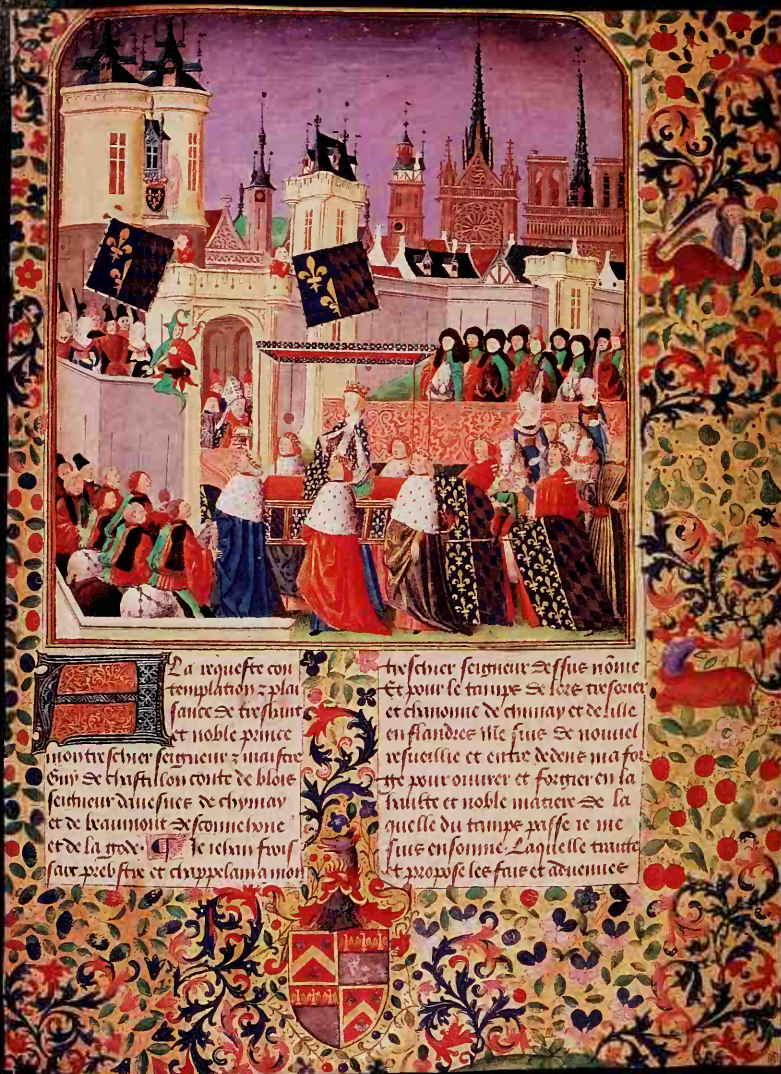 A La requeste con
templation z plai
sance de treshaut
et noble prince
mon treschier seigneur z maistre
Guy de chastillon conte de blois
seigneur davesnes de chymay
et de beaumont de sconnehone
et de la gode. Je iehan frois
sart prebstre et chappelain a mon
treschier seigneur dessus nōme
Et pour le tamps de lors tresorier
et chanonne de chimay et de lille
en flandres me suis de nouvel
resueillie et entre dedens ma for
ge pour ouvrer et forgier en la
haulte et noble matiere de la
quelle du tamps passe ie me
suis ensonnie Laquelle traitte
et propose les fais et aduenues